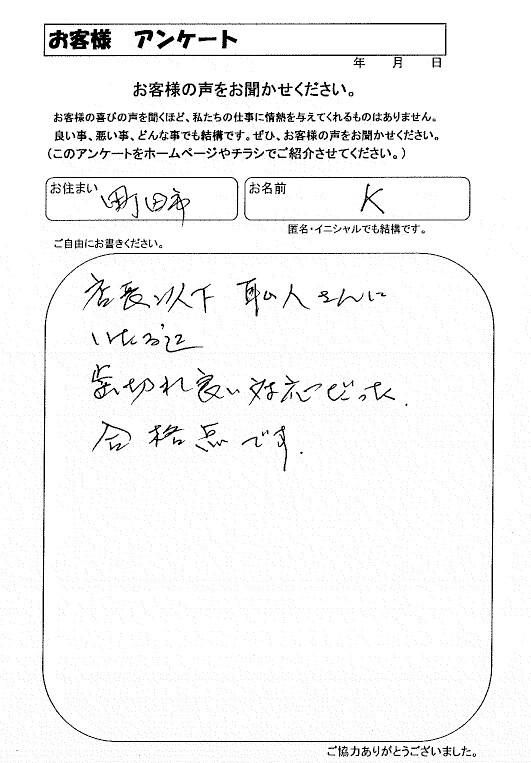 お客様 アンケート
年 月 日
お客様の声をお聞かせください。
お客様の喜びの声を聞くほど、私たちの仕事に情熱を与えてくれるものはありません。
良い事、悪い事、どんな事でも結構です。ぜひ、お客様の声をお聞かせください。
(このアンケートをホームページやチラシでご紹介させてください。)
お住まい 町田市
お名前 K
匿名・イニシャルでも結構です。
ご自由にお書きください。
店長以下 職人さんに
いたるまで
歯切れ良い対応だった.
合格点です.
ご協力ありがとうございました。